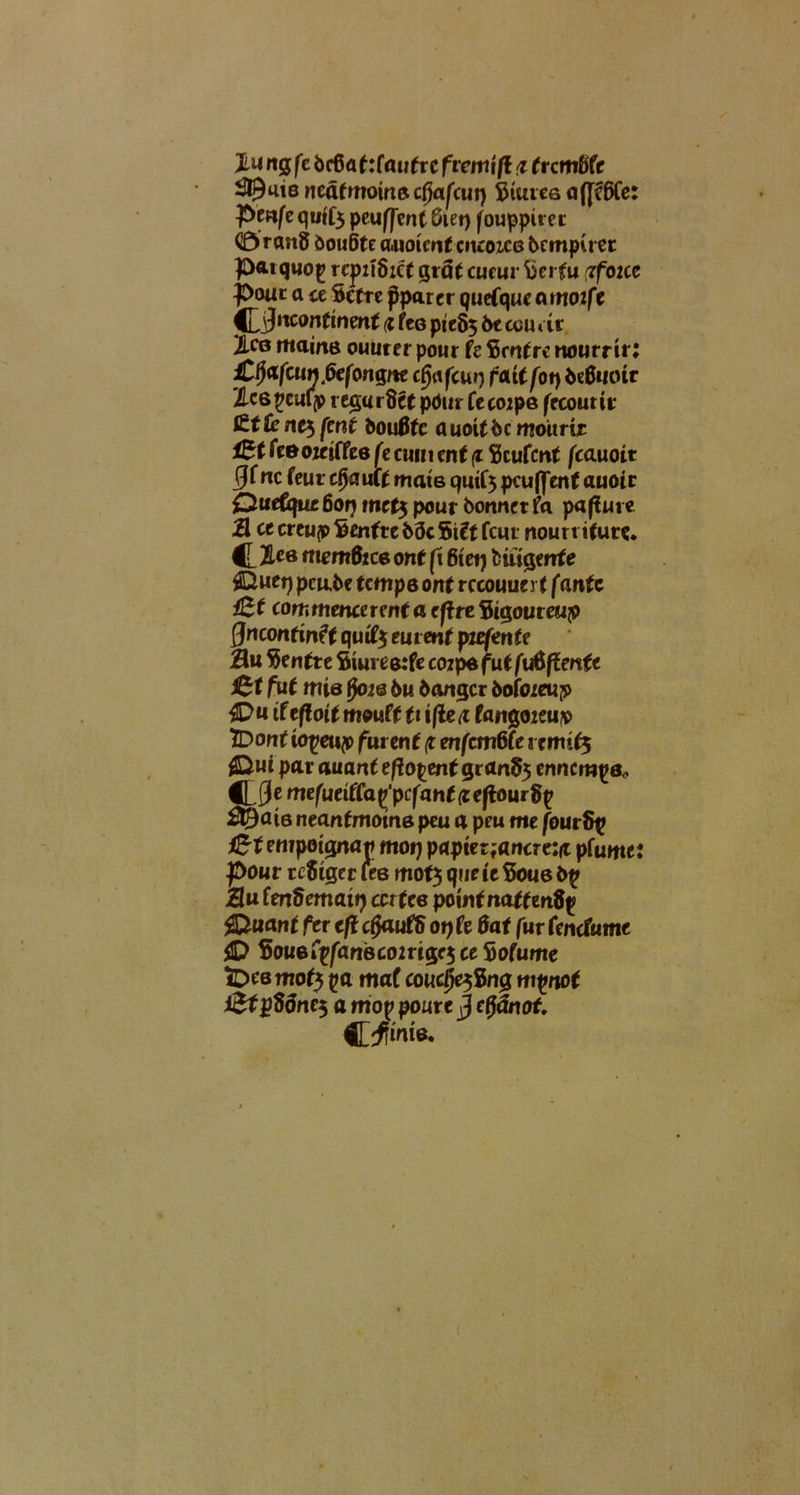 Lung se debat: lautre fremist ⁊ tremble
Mais neātmoins chascun viures assēble:
Pense quilz peussent bien souppirer
Grand doubte auoient encores dempirer
Par quoy reprīdrēt grāt cueur vertu ⁊ force
Pour a ce vētre pparer quelque amorse
¶ Incontinent ⁊ les piedz de courir
Les mains ouurer pour le ventre nourrir:
Chascun besongne chascun fait son debuoir
Les yeulx regardēt pour le corps secourir
Et le nez sent doubte auoit de mourir
Et les oreilles se cuurent ⁊ veulent scauoir
Il ne leur chault mais quilz peussent auoir
Quelque bon metz pour donner la pasture
A ce creux ventre dōc viēt leur nourriture.
¶ Les membres ont si bien diligente
Quen peu de temps ont recouuert sante
Et commencerent a estre vigoureux
Incontinēt quilz eurent presente
Au ventre viures: le corps fut substente
Et fut mis hors du danger doloreux
Ou il estoit moult triste ⁊ langoreux
Dont ioyeux furent ⁊ ensemble remitz
Qui par auant estoyent grandz ennemys.
¶ Ie mesueillay pesant ⁊ estourdy
Mais neantmoins peu a peu me sourdy
Et empoignay mon papier, ancre: ⁊ plume:
Pour rediger les motz que ie vous dy
Au lendemain certes point nattendy
Quant fer est chauld on le bat sur lenclume
O vous lysans corrigez ce volume
Des motz ya mal couchez vng mynot
Et pdōnez a moy poure I ehānot.
¶ Finis.